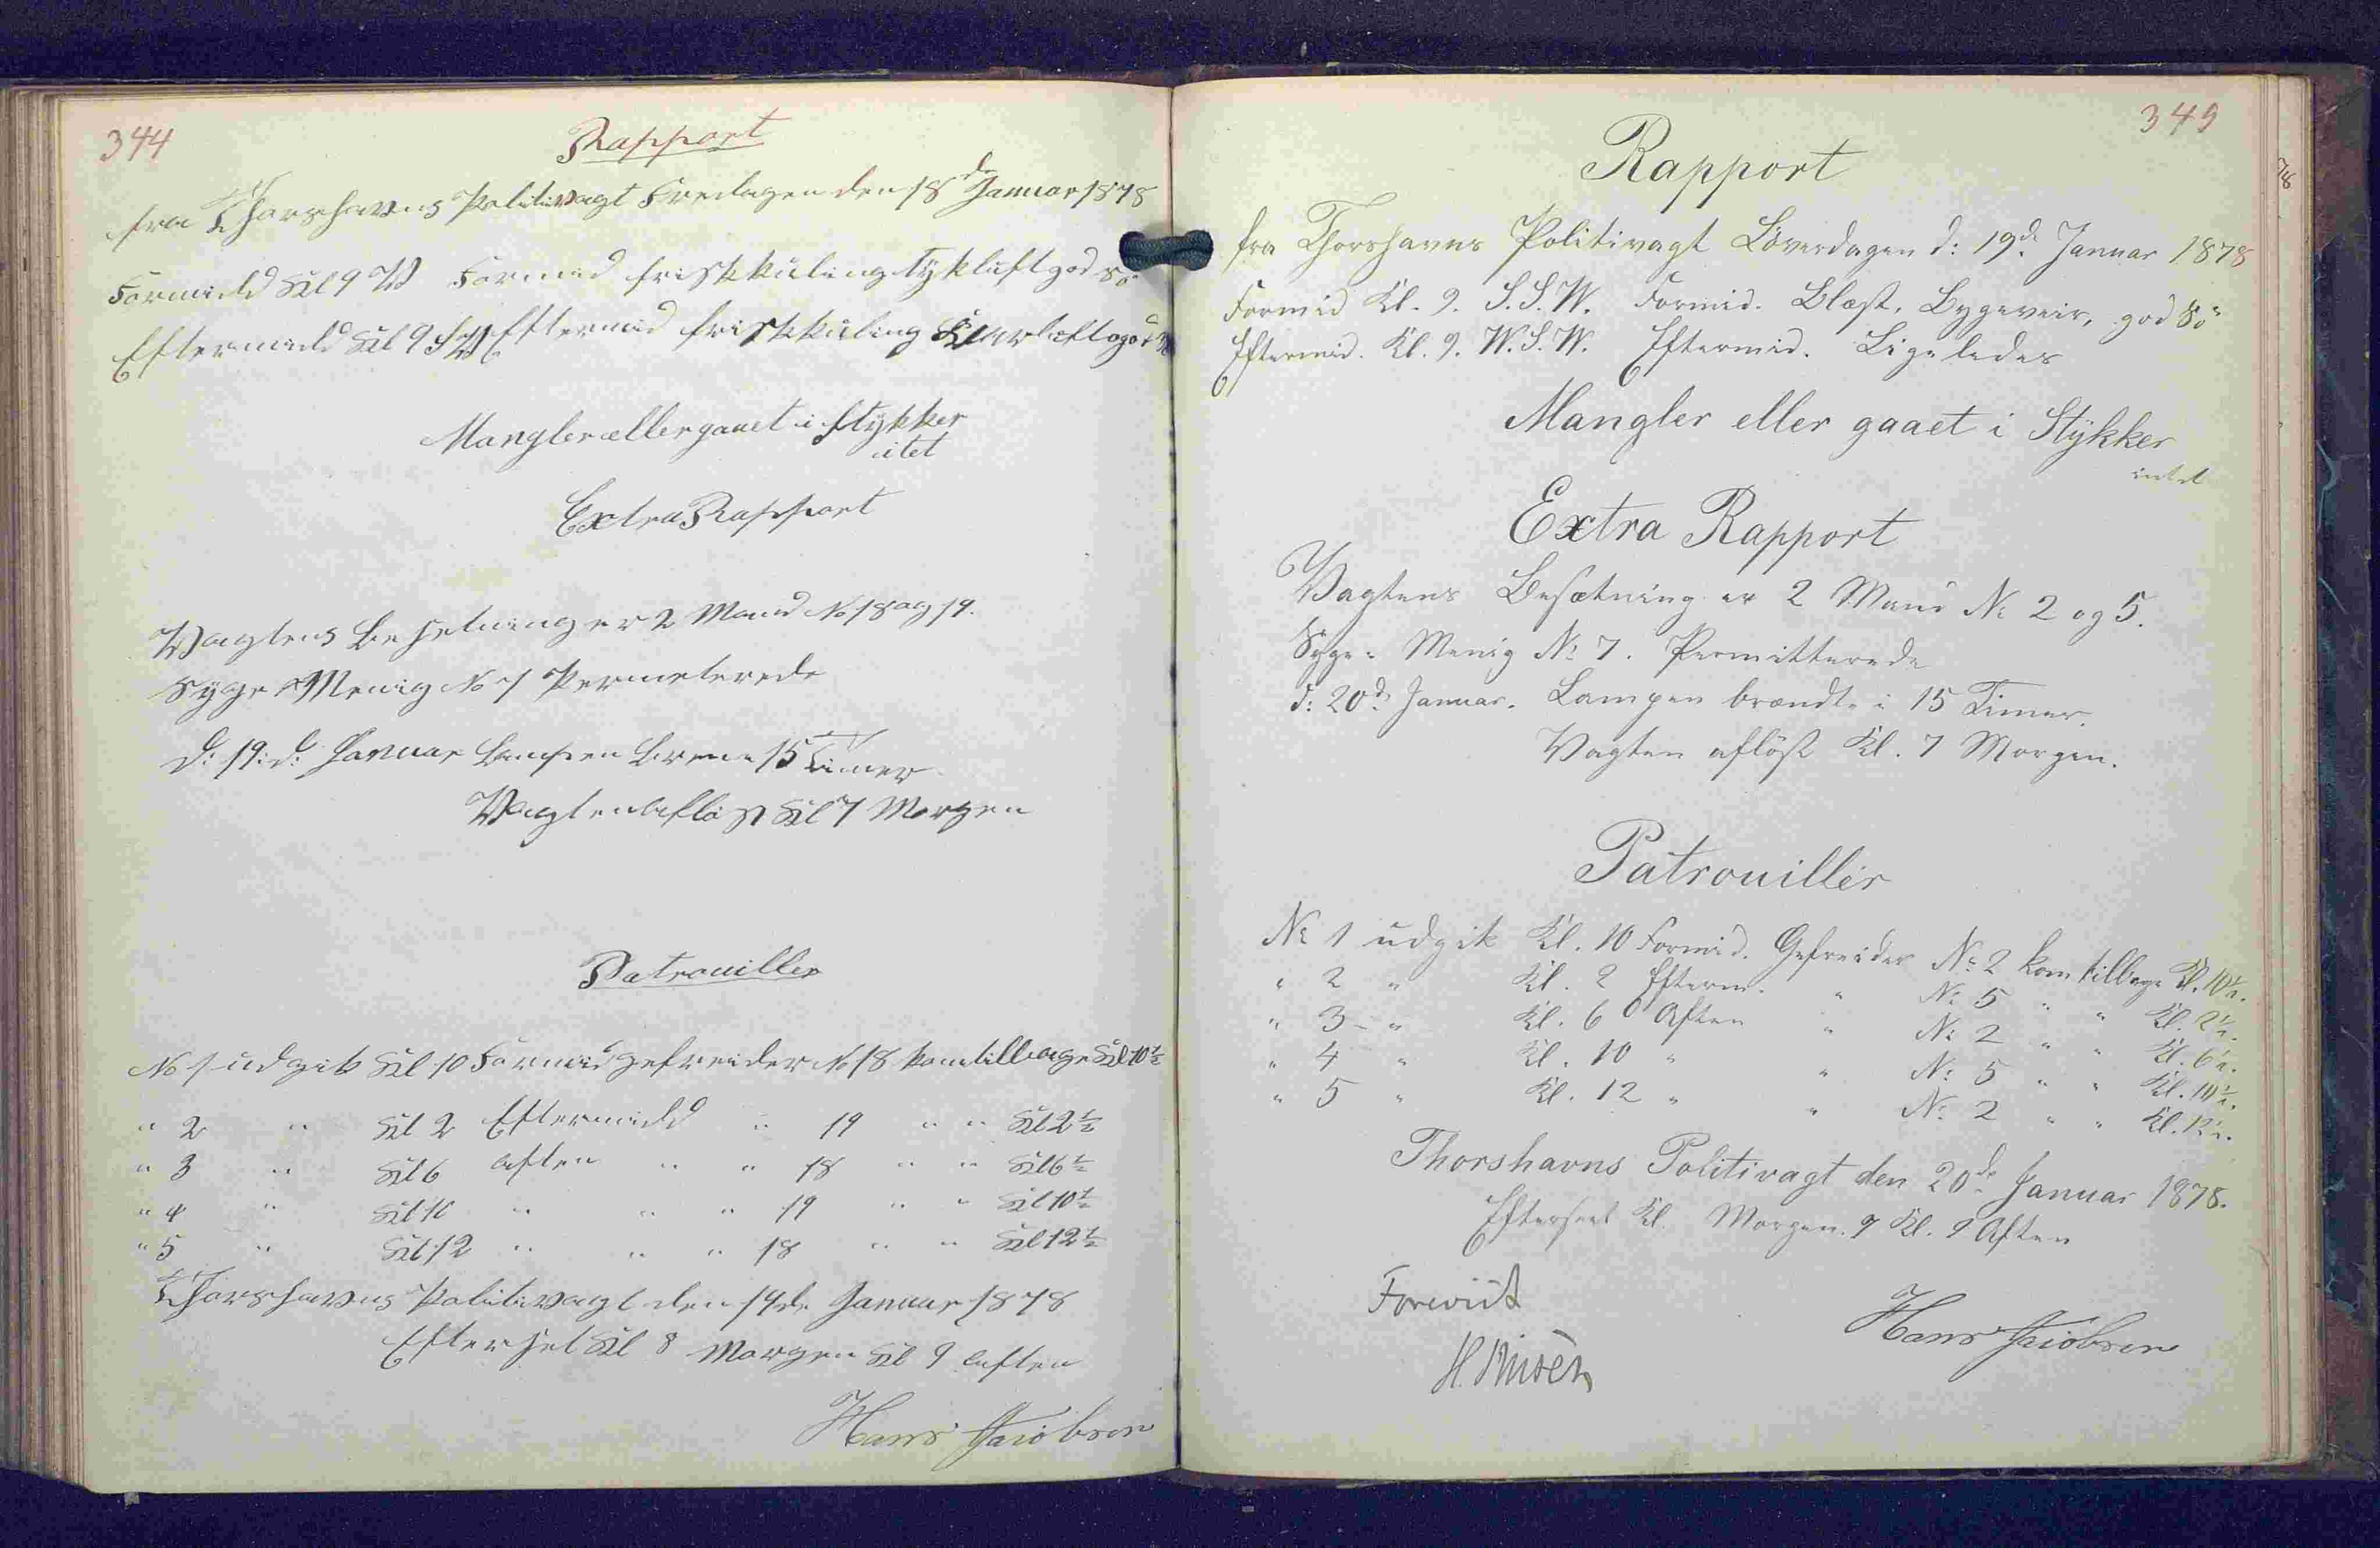 344
Rapport
fra Thorshavns Politivagt Fredagen den 18de Januar 1878
Formidd Kl 9 W Formid frisk kuling tyk luft god Sö
Eftermidd Kl 9 SW Eftermid frisk kuling klar luft god
Mangler eller gaaet i stykker
itet
Extra Rapport
Vagtens Besetning er 2 Mand No 18 og 19.
Syge Menig No 7 Permeterede
d: 19:d: Januar Lampen brene 15 Timer
Vagten aflöst Kl 7 Morgen
Patrouiller
No 1 udgik Kl 10 Formid gefreider No 18 kom tilbage Kl 10½
" 2 " Kl 2 Eftermidd " 19 " " Kl 2½
" 3 " Kl 6 aften " " 18 " " Kl 6½
" 4 " Kl 10 " " " 19 " " Kl 10½
" 5 " Kl 12 " " " 18 " " Kl 12½
Thorshavns Politivagt den 19de Januar 1878
Efterset Kl 8 Morgen Kl 9 aften
Hans Jacobsen
349
Rapport
fra Thorshavns Politivagt Löverdagen d: 19de Januar 1878
Formid Kl. 9. S.S.W. Formid. Blæst, Bygeveir, god Sö
Eftermid. Kl. 9. W.S.W. Eftermid. Ligeledes
Mangler eller gaaet i Stykker
intet
Extra Rapport
Vagtens Besætning er 2 Mand No 2 og 5.
Syge: Menig No 7. Permitterede
d: 20de Januar. Lampen brændte i 15 Timer.
Vagten aflöst Kl. 7 Morgen.
Patrouiller
No 1 udgik Kl. 10 Formid. Gefreider No 2 kom tilbage Kl. 10½.
" 2 " Kl. 2 Efterm. " No 5 " " Kl. 2½.
" 3 " Kl. 6 Aften " No 2 " " Kl. 6½.
" 4 " Kl. 10 " " No 5 " " Kl. 10½.
" 5 " Kl. 12 " " No 2 " " Kl. 12½.
Thorshavns Politivagt den 20de Januar 1878.
Efterseet Kl. Morgen. 9 Kl. 9 Aften
Forevist
Hans Jacobsen
78